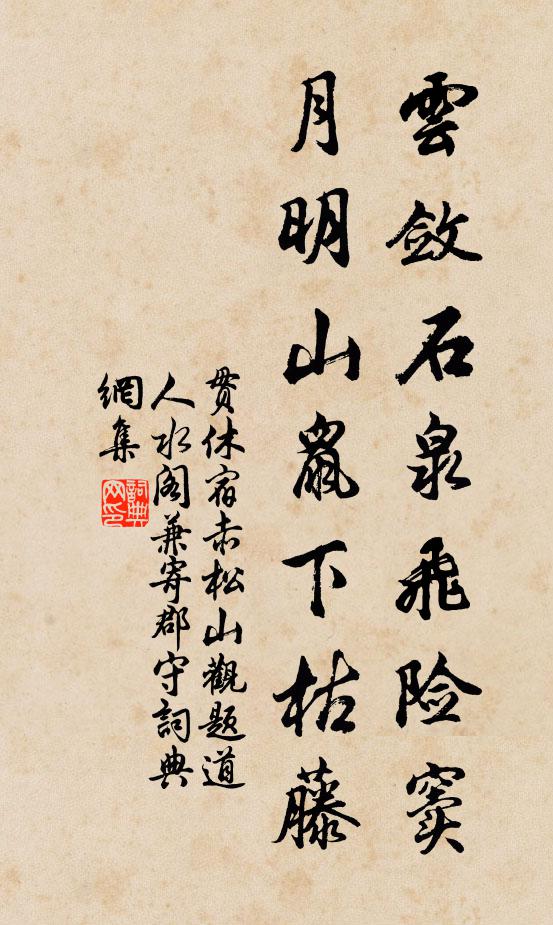 雲斂石泉飛险竇
月明山鼠下枯藤
贯休宿赤松山觀题道
人水阁兼寄郡守詞典
網集
詞典网印